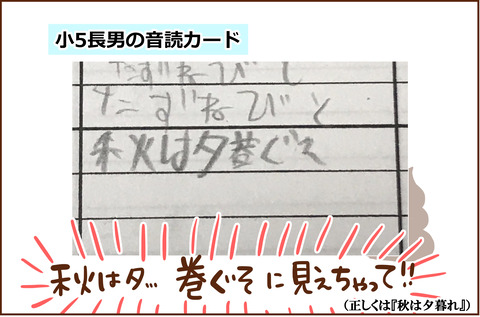 小5長男の音読カード
たずねびと
たずねびと
秋は夕
秋はタ… 巻ぐそ に見えちゃって!!
(正しくは『秋は夕暮れ』)